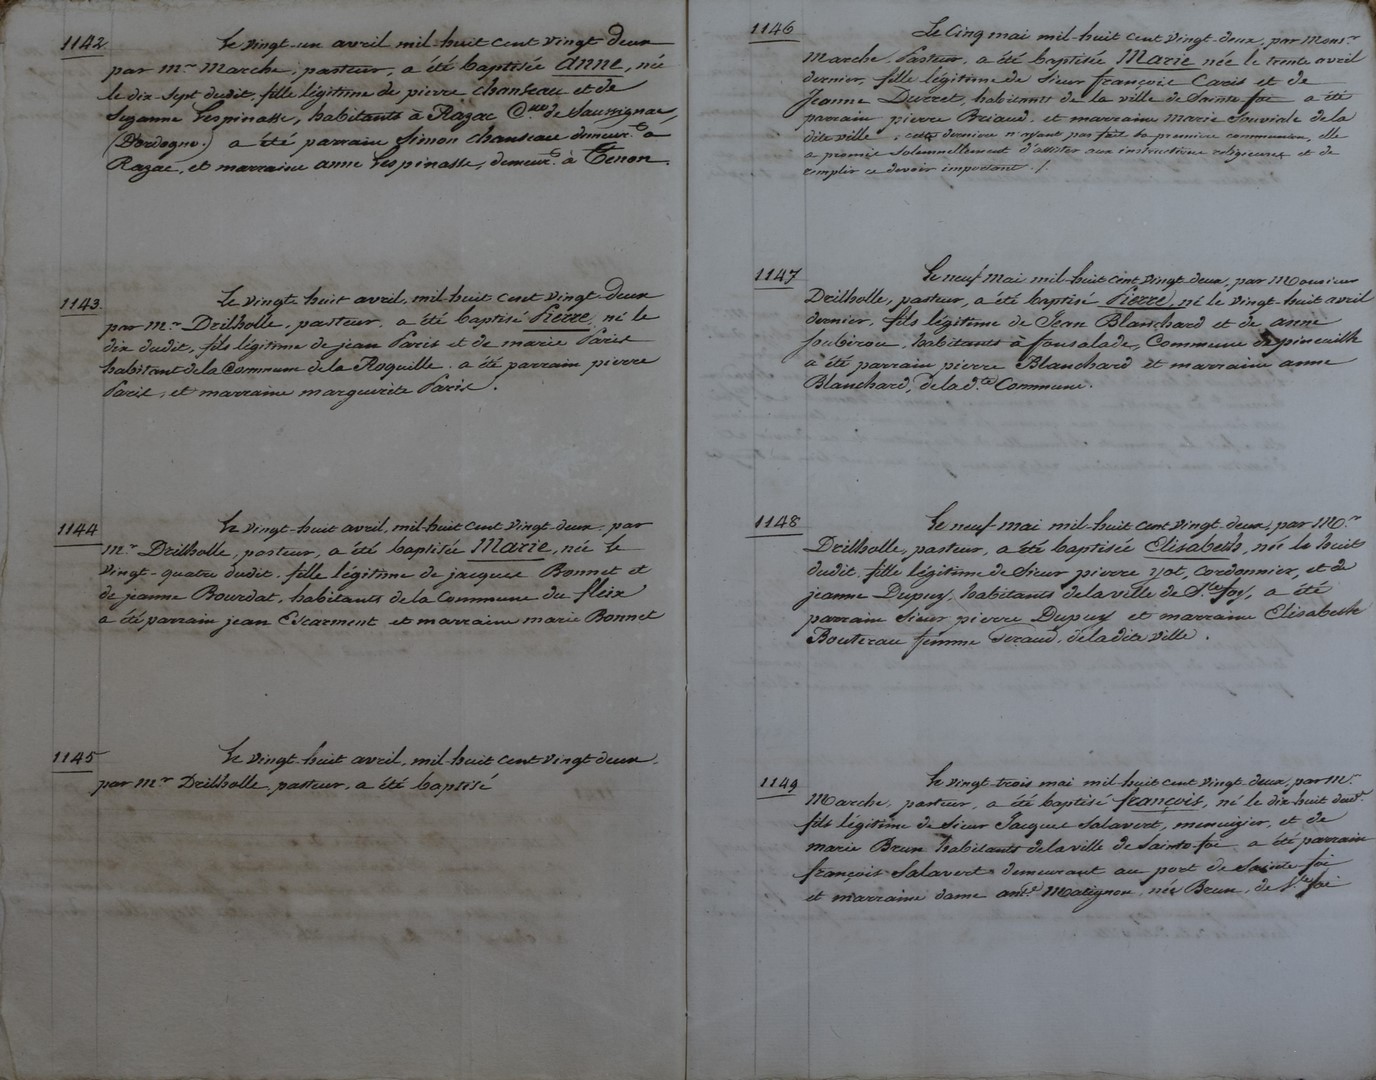 1142. Le vingt-un avril mil-huit cent vingt deux
par mr Marche, pasteur, a été baptisée Anne, née
le dix-sept dudit, fille légitime de pierre chanseau et de
Suzanne Lespinasse, habitants à Razac Cne de Saussignac,
(Dordogne.) a été parrain Simon chanseau demeurt à
Razac, et marraine anne Lespinasse, demeurt à Tenon.
1143. Le vingt-huit avril, mil-huit cent vingt-deux
par mr Drilholle, pasteur, a été baptisé Pierre, né le
dix dudit, fils légitime de jean Paris et de marie Paris
habitant de la Commune de la Roquille. a été parrain pierre
Paris, et marraine marguerite Paris.
1144 Le vingt-huit avril, mil-huit cent vingt-deux, par
mr Drilholle, pasteur, a été baptisée Marie, née le
vingt-quatre dudit, fille légitime de jacques Bonnet et
de jeanne Bourdat, habitants de la Commune du fleix
a été parrain jean Escarment et marraine marie Bonnet
1145 Le vingt-huit avril, mil-huit cent vingt deux,
par mr Drilholle, pasteur, a été baptisé
1146 Le Cinq mai mil-huit cent vingt-deux, par Monsr
Marche, Pasteur, a été baptisée Marie née le trente avril
dernier, fille légitime de Sieur françois Caris et de
Jeanne Durret, habitants de la ville de Sainte foi a été
parrain pierre Briaud, et marraine marie Souviale de la
dite ville, cette dernière n'ayant pas fait sa première communion, elle
a promis solemnellement d'assister aux instructions religieuses et de
remplir ce devoir important ./.
1147 Le neuf Mai mil-huit cent vingt deux, par Monsieur
Drilholle, pasteur, a été baptisé Pierre, né le vingt-huit avril
dernier, fils légitime de Jean Blanchard et de anne
Soubiroux, habitants à fonsalade, Commune de pineuilh
a été parrain pierre Blanchard et marraine anne
Blanchard, de la d.te Commune.
1148 Le neuf mai mil-huit cent vingt deux, par M.r
Drilholle, pasteur, a été baptisée Elisabeth, née le huit
dudit, fille légitime de Sieur pierre yot, cordonnier, et de
jeanne Dupuy, habitants de la ville de Ste foy, a été
parrain Sieur pierre Dupuy et marraine Elisabeth
Bouteraux femme Seraud, de la dite ville.
1149 Le vingt trois mai mil-huit cent vingt deux, par Mr
Marche, pasteur, a été baptisé françois, né le dix huit dudt
fils légitime de Sieur Jacques Salavert, menuizier, et de
marie Brun habitants de la ville de Sainte-foi a été parrain
françois Salavert demeurant au port de Sainte-foi
et marraine dame ante Matignon, née Brun, de Ste foi